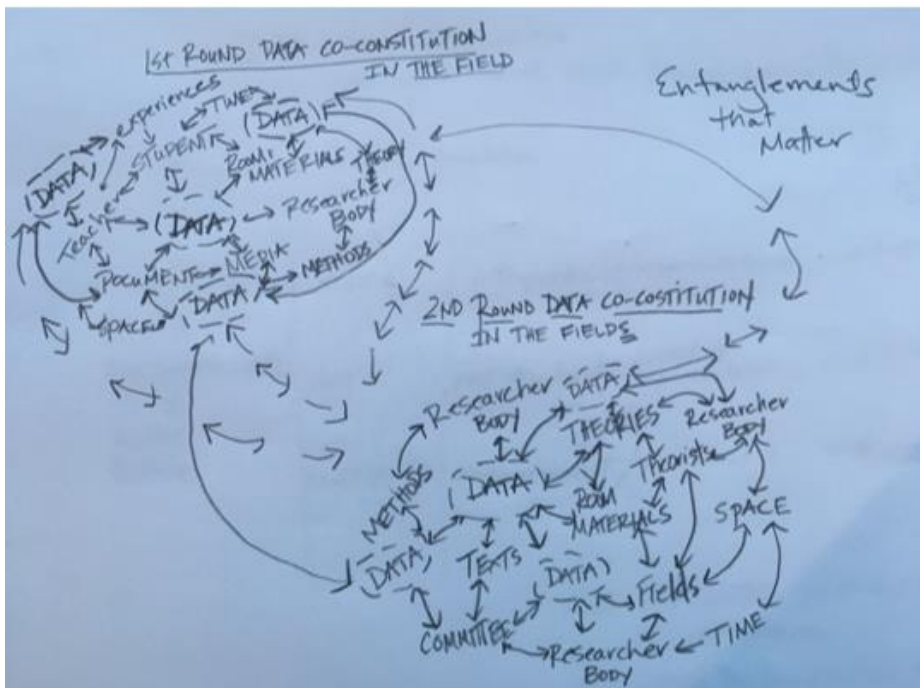 1st ROUND DATA CO-CONSTITUTION
IN THE FIELD
Entanglements
that
Matter
experiences
TIME
(DATA)
(DATA)
STUDENT
ROOM
MATERIALS
THEORY
Teacher
(DATA)
Researcher
BODY
DOCUMENT
MEDIA
METHODS
SPACE
(DATA)
2ND ROUND DATA CO-COSTITUTION
IN THE FIELDS
Researcher
BODY
DATA
THEORIES
Researcher
BODY
METHODS
(DATA)
Theorists
ROOM
MATERIALS
SPACE
(DATA)
TEXTS
(DATA)
Fields
COMMITTEE
Researcher
BODY
TIME